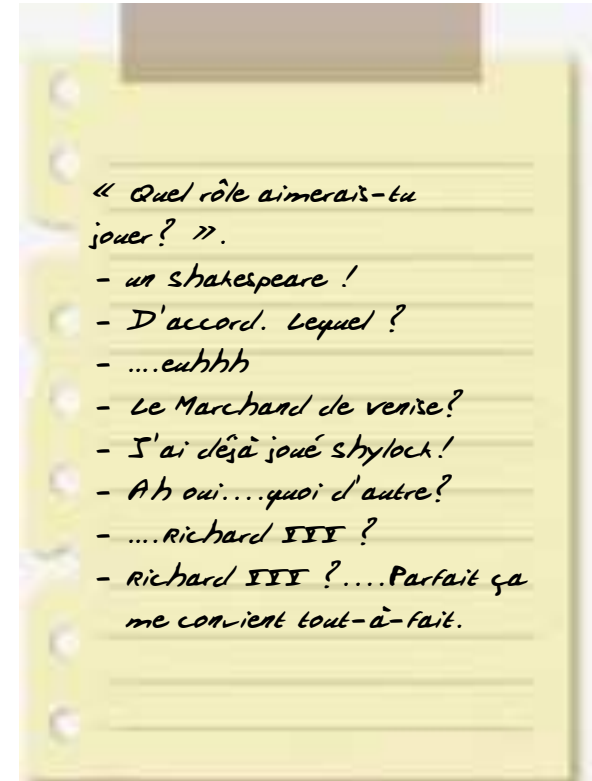 « Quel rôle aimerais-tu
jouer? ».
- un shakespeare !
- D'accord. Lequel ?
- ....euhhh
- Le Marchand de venise?
- J'ai déjà joué shylock!
- Ah oui....quoi d'autre?
- ....Richard III ?
- Richard III ?....Parfait ça
me convient tout-à-fait.